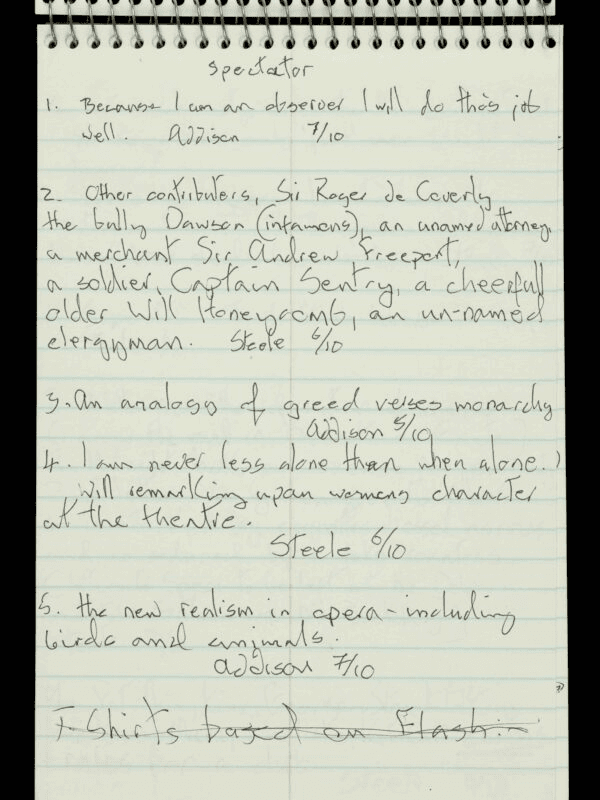 Spectator
1. Because I am an observer I will do this job
well. Addison 7/10
2. Other contributers, Sir Roger de Coverly
the bully Dawson (infamous), an unamed attorney,
a merchant Sir Andrew Freeport,
a soldier, Captain Sentry, a cheerfull
older Will Honeycomb, an un-named
clergyman. Steele 6/10
3. An analogy of greed verses monarchy
Addison 5/10
4. I am never less alone than when alone.)
Will remarking upon womens character
at the theatre.
Steele 6/10
5. the new realism in opera - including
birds and animals.
Addison 7/10
T-Shirts based on Flash